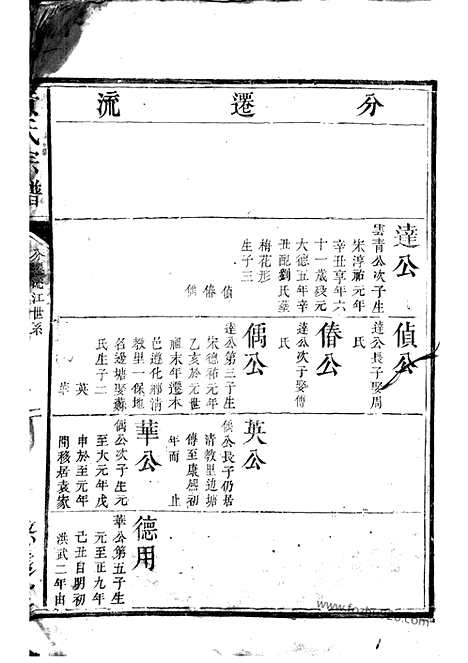 分遷流
達公
雲青公次子生
宋淳祐元年
辛丑享年六
十一歲歿元
大德五年辛
丑配劉氏葬
梅花形
生子三
偵
偆
偶
偵公
達公長子娶周
氏
偆公
達公次子娶傅
氏
偶公
達公第三子生
宋德祐元年
乙亥於元世
祖末年遷本
邑遵化鄉清
教里一保塘
名邊塘娶蘇
氏生子二
英
華
英公
偶公長子仍居
清教里邊塘
傳至康熙初
年而止
華公
偶公次子生元
至大元年戊
申於至元年
間移居袁家
德用
華公第五子生
元至正九年
己丑自明初
洪武二年由
氏宗譜
江世系